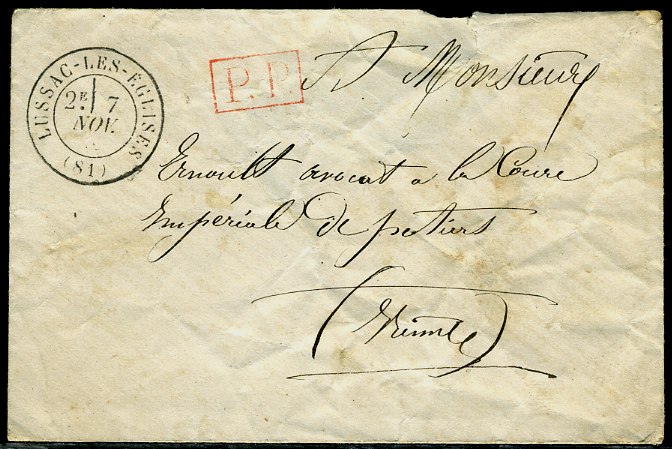 LUSSAC-LES-EGLISES
2E 7
NOV.
(81)
P.P.
A Monsieur
Ernoult avocat a la Coure
Impériale de poitiers
(Vienne)